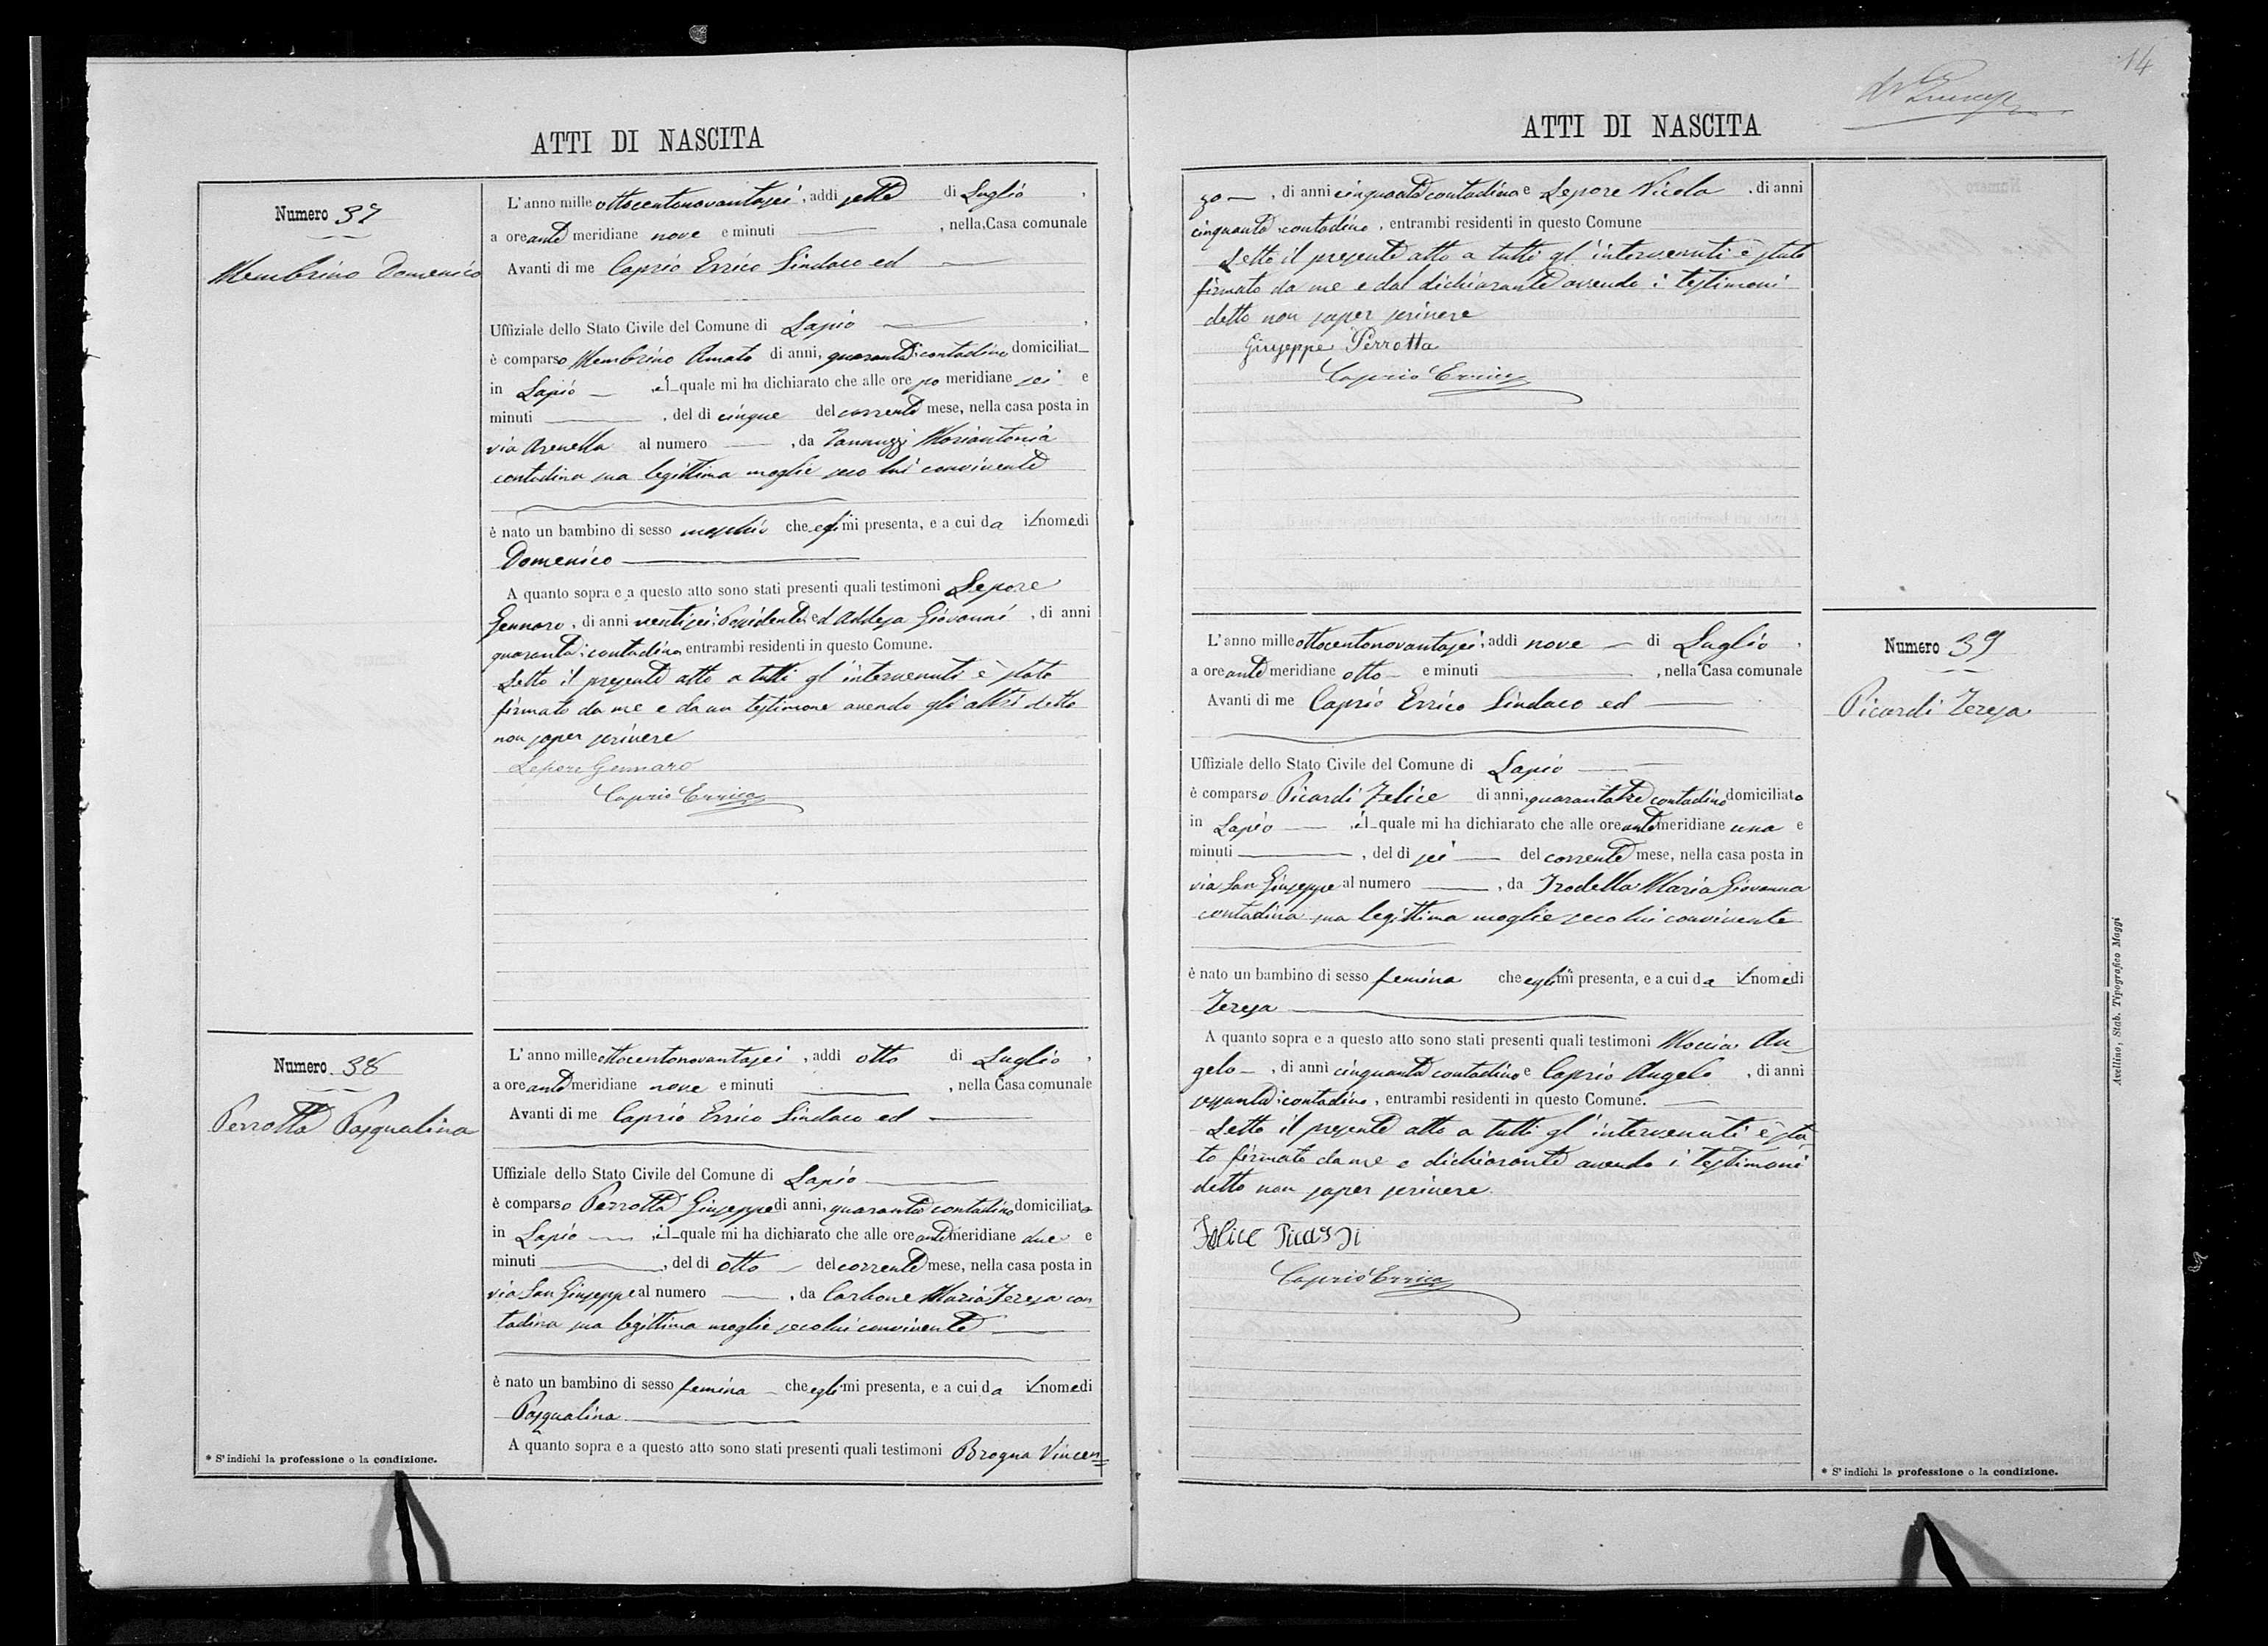 14
ATTI DI NASCITA
Numero 37
Membrino Domenico
L'anno mille ottocentonovantasei, addi sette di Luglio,
a ore ante meridiane nove e minuti —, nella Casa comunale
Avanti di me Caprio Errico Sindaco ed —
Uffiziale dello Stato Civile del Comune di Lapio —,
è comparso Membrino Amato di anni, quaranta: contadino domiciliat_
in Lapio —, il quale mi ha dichiarato che alle ore po meridiane sei e
minuti —, del di cinque del corrente mese, nella casa posta in
via Arenella al numero —, da Iannuzzi Mariantonia
contadina sua legittima moglie seco lui convivente
è nato un bambino di sesso maschio che egli mi presenta, e a cui da il nome di
Domenico —
A quanto sopra e a questo atto sono stati presenti quali testimoni Lepore
Gennaro, di anni ventisei: Possidente ed Addesa Giovanni, di anni
quaranta: contadino entrambi residenti in questo Comune.
Letto il presente atto a tutti gl'intervenuti è stato
firmato da me e da un testimone avendo gli altri detto
non saper scrivere
Lepore Gennaro
Caprio Errico
Numero 38
Perrotta Pasqualina
L'anno mille ottocentonovantasei, addi otto di Luglio,
a ore ante meridiane nove e minuti —, nella Casa comunale
Avanti di me Caprio Errico Sindaco ed —
Uffiziale dello Stato Civile del Comune di Lapio —
è comparso Perrotta Giuseppe di anni, quaranta contadino domiciliato
in Lapio —, il quale mi ha dichiarato che alle ore ante meridiane due e
minuti —, del di otto — del corrente mese, nella casa posta in
via San Giuseppe al numero —, da Carbone Maria Teresa con
tadina sua legittima moglie seco lui convivente —
è nato un bambino di sesso femina — che egli mi presenta, e a cui da il nome di
Pasqualina —
A quanto sopra e a questo atto sono stati presenti quali testimoni Brogna Vincen=
* S'indichi la professione o la condizione.
ATTI DI NASCITA
zo —, di anni cinquanta contadino e Lepore Nicola, di anni
cinquanta contadino, entrambi residenti in questo Comune
Letto il presente atto a tutti gl'intervenuti è stato
firmato da me e dal dichiarante avendo i testimoni
detto non saper scrivere
Giuseppe Perrotta
Caprio Errico
Numero 39
Picardi Teresa
L'anno mille ottocentonovantasei, addi nove — di Luglio,
a ore ante meridiane otto — e minuti —, nella Casa comunale
Avanti di me Caprio Errico Sindaco ed —
Uffiziale dello Stato Civile del Comune di Lapio —
è comparso Picardi Felice di anni, quarantatre contadino domiciliato
in Lapio —, il quale mi ha dichiarato che alle ore ante meridiane una e
minuti —, del di sei — del corrente mese, nella casa posta in
via San Giuseppe al numero —, da Trodella Maria Giovanna
contadina sua legittima moglie seco lui convivente
è nato un bambino di sesso femina che egli mi presenta, e a cui da il nome di
Teresa —
A quanto sopra e a questo atto sono stati presenti quali testimoni Moccia An
gelo —, di anni cinquanta contadino e Caprio Angelo, di anni
sessanta: contadino, entrambi residenti in questo Comune. —
Letto il presente atto a tutti gl'intervenuti è sta
to firmato da me e dichiarante avendo i testimoni
detto non saper scrivere.
Felice Picardi
Caprio Errico
* S'indichi la professione o la condizione.
Avellino, Stab. Tipografico Maggi